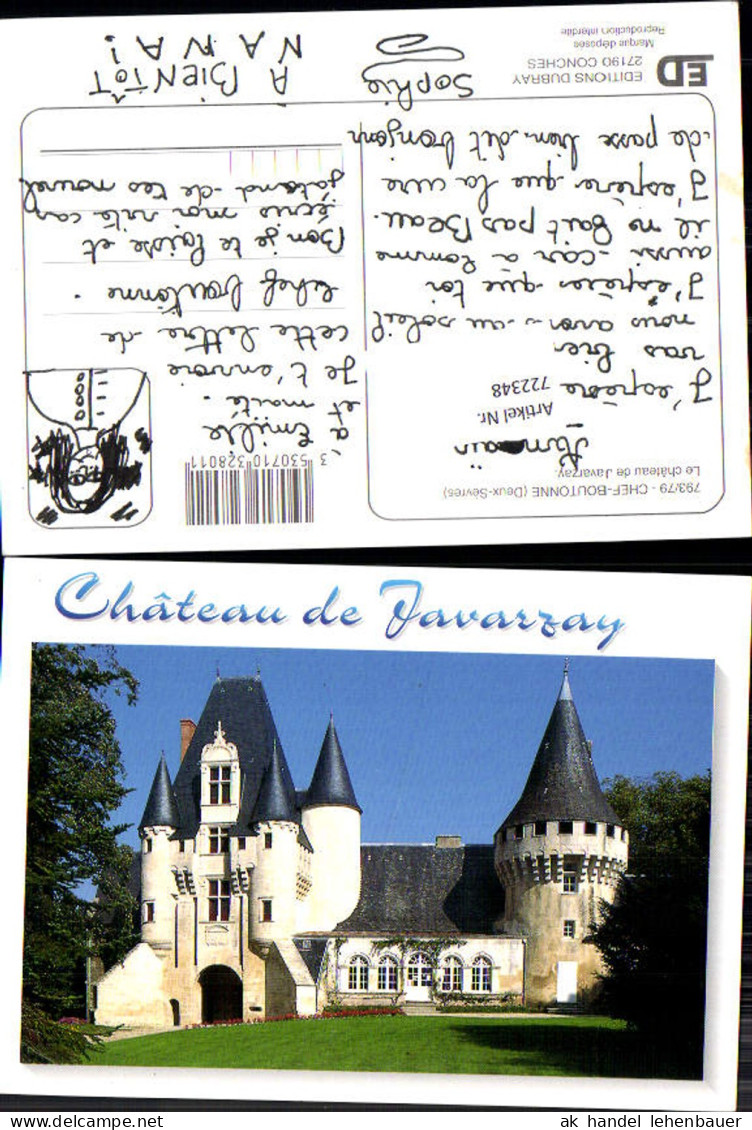 793/79 - CHEF-BOUTONNE (Deux-Sèvres)
Le château de Javarzay.
Artikel Nr.
722348
J'espère
vas bien
nous avons au soleil
J'espères que toi
aussi car a Romme
il no fait pas Beau.
J'espère que la cure
de passe bien. dit bonjour
Sophie
EDITIONS DUBRAY
27190 CONCHES
Marque déposée
Reproduction interdite
ED
3 530710 328011
à Emilie
et maïté.
Je t'envoie
cette lettre de
chef boutonne.
Bon je te laisse et
écris moi vite car
j'atend de tes nouvel
A BIENTÔT
NANA!
Château de Javarzay
ak handel lehenbauer